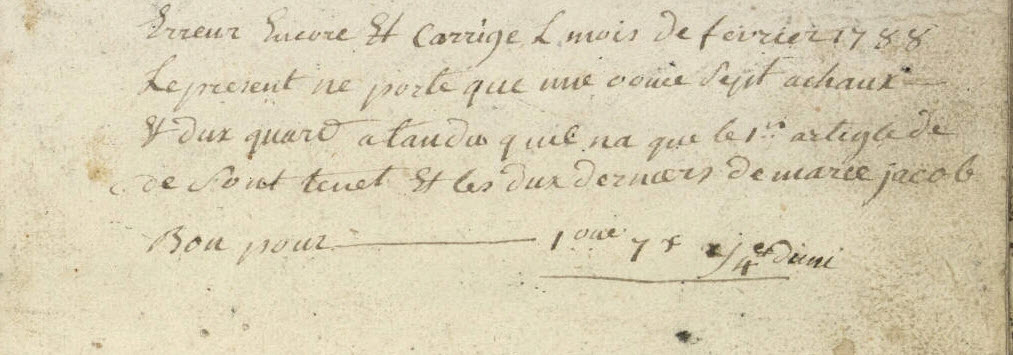 Erreur Encore Et Carrige L mois de fevrier 1788
Le present ne porte que une ouuie Sept achaux
& dux quard atandu quil na que le 1er artigle de
de Sont tenet Et les dux derniers de marie jacob
Bon pour 1 ouie 7 x /4 et dimi